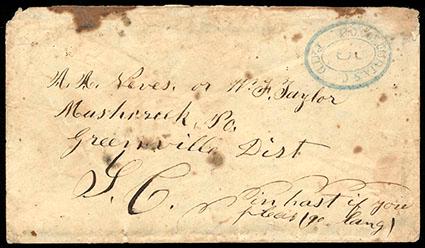 PAID
A. A. Neves. or W. F. Taylor
Mushcreek Po.
Greenville Dist
S. C.
in hast if you
pleas (go lang)